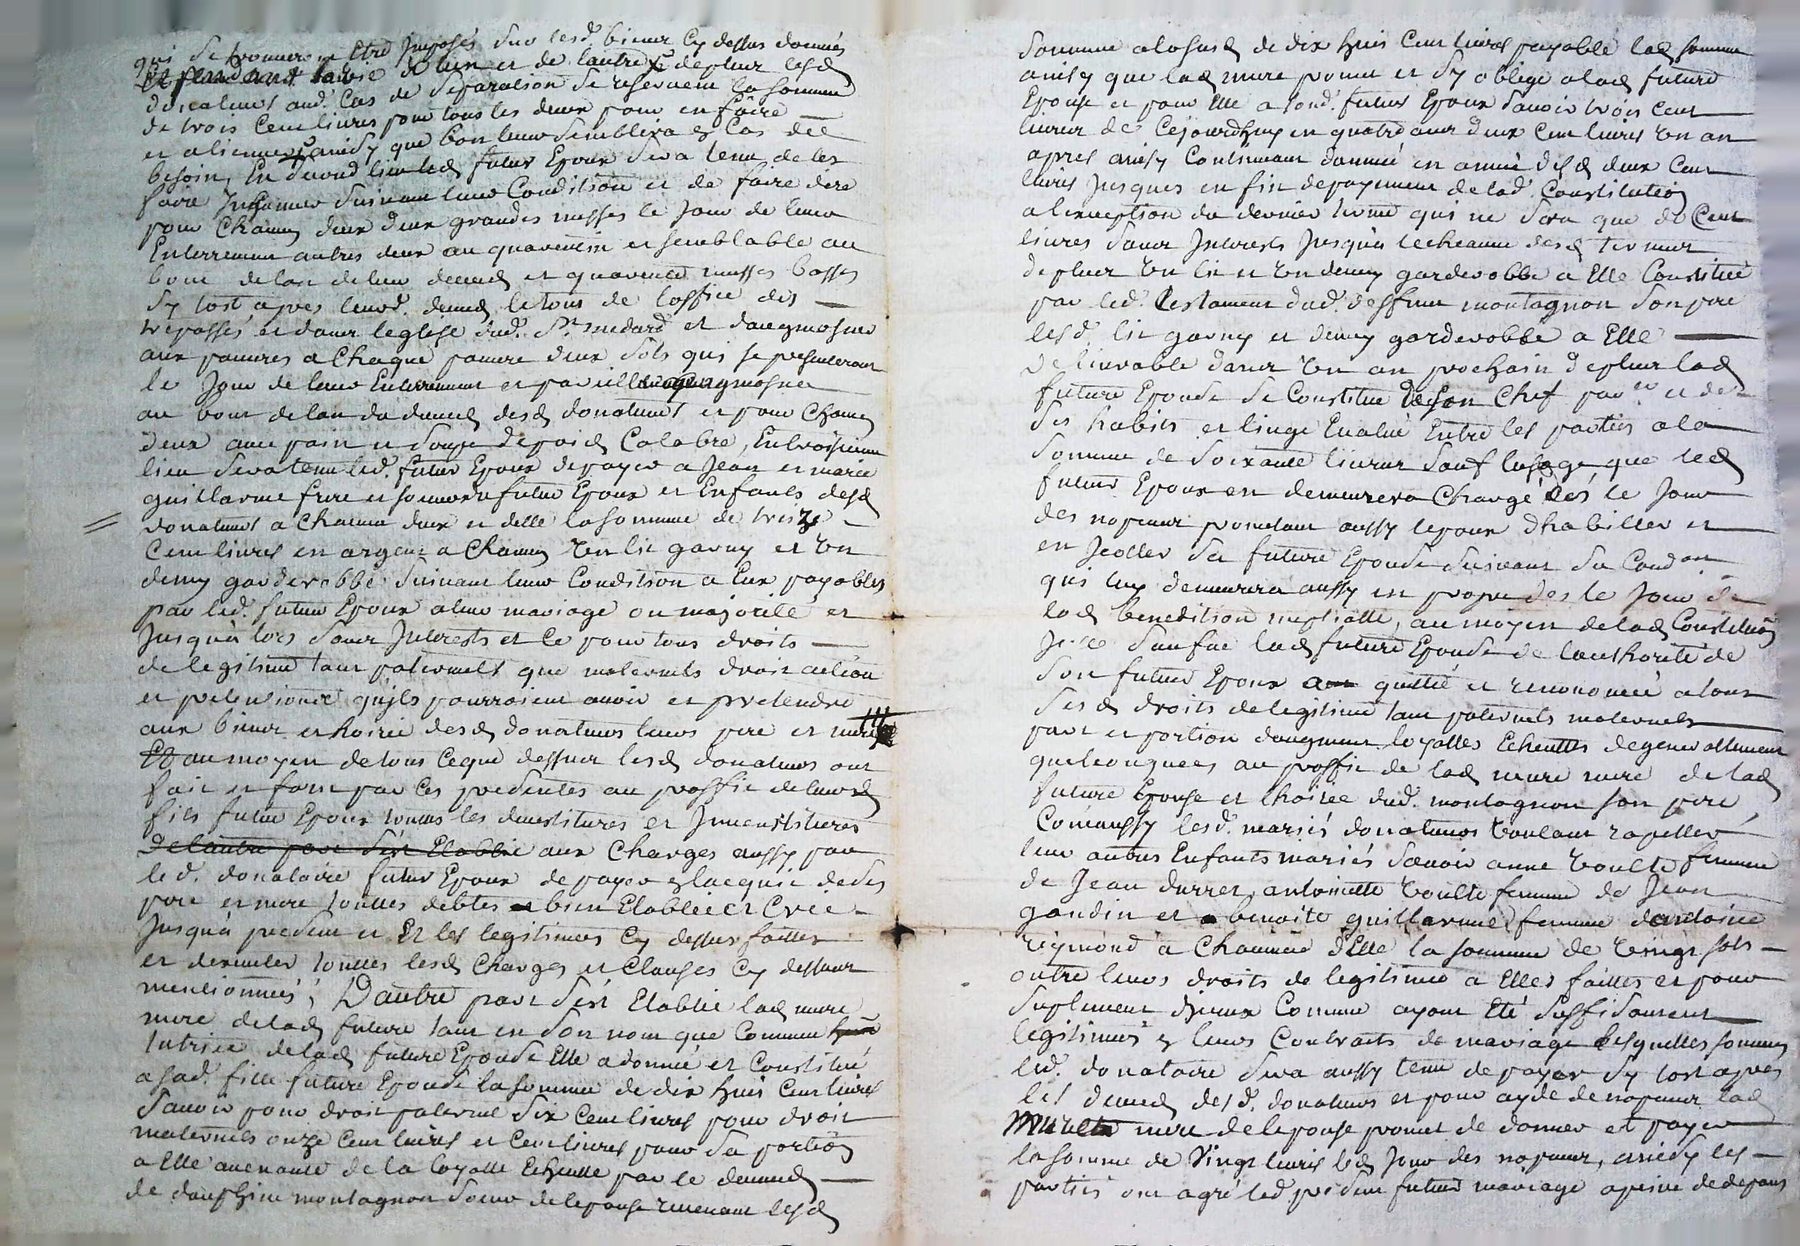 qui se trouveront Etre Imposés sur lesd. bienz Cy dessus donnés
de lun et de lautre depluz lesd
donateurs aud. Cas de separation se reservent la somme
de trois Cent livres pour tous les deux pour en faire
et aliener ainsy que bon leur semblera & Cas de
besoin, En second lieu led futur Epoux sera tenu de les
faire Inhumer suivant leur Condition et de faire dire
pour Chacun deux deux grandes messes le Jour de leur
Enterrement autres deux au quarantin et semblable au
bout de lan de leur deced et quarente messes basses
sy tost apres leurd. deced le tous de loffice des
trepassés et danz leglise dud. St. medard et daugmosner
aux pauvres a Chaque pauvre deux sols qui se presenteront
le Jour de leur Enterrement et pareille augmosner
au bout de lan du deced desd donateurs et pour Chacun
deux avec pain et soupe Calabre, En troisieme
lieu sera tenu led. futur Epoux de payer a Jean et marie
guillarme frere et soeur futur Epoux et Enfants desd
donateurs a Chacun deux et delle la somme de treize
Cent livres en argent a Chacun Un lit garny et Un
demy garderobbe suivant leur Condition a Eux payables
par led. futur Epoux a leur mariage ou majorité et
Jusqu'a lors sanz Interests et Ce pour tous droits
de legitime tant paternels que maternels droit action
et pretensions qu'jls pourroient avoir et pretendre
aux bienz et hoirie desd donateurs leurs pere et mere
Et au moyen de tous Ceque dessuz lesd donateurs ont
fait et font par Ces presentes au proffit de leurd
fils futur Epoux toutes les devestitures et Jnvestitures
De lautre part s'est Etablie aux Charges aussy par
led. donataire futur Epoux de payer & lacquit de ses
pere et mere toutes debtes bien Etablie et Cree
Jusqu'a present et Et les legitimes Cy dessuz faittes
et dexecuter toutes lesd Charges et Clauses Cy dessuz
mentionnées; D'autre part s'est Etablie lad mure
mere de lad future tant en son nom que Comme
tutrice de lad future Epouse Elle a donné et Constitué
a sad. fille future Epouse la somme de dix huit Cent livres
savoir pour droit paternel six Cent livres pour droit
maternels onze Cent livres et Cent livres pour sa portion
a Elle avenante de la loyalle Echeutte par le deced
de dauphine montagnon soeur de lepouse revenant lesd
somme alasusd de dix huit Cent livres payable lad somme
ainsy que lad mure promet et s'y oblige a lad future
Epouse et pour Elle a sond. futur Epoux savoir trois Cent
livres de Cejourdhuy en quatre ans deux Cent livres Un an
apres ainsy Continuant dannée en année desd deux Cent
livres Jusques en fin de payement de lad. Constitution
a lexception du dernier terme qui ne sera que de Cent
livres sanz Interests Jusqu'a lecheance desd termes
de pluz Un lit et Un demy garderobbe a Elle Constitué
par led. testament dud. deffunt montagnon son pere
lesd. lit garny et demy garderobbe a Elle
delivrable danz Un an prochain de pluz lad
future Epouse se Constitue de son Chef par et de
ses habits et linge Evalué Entre les parties a la
somme de soixante livres sauf lusage que led
futur Epoux en demeurera Chargé dés le Jour
des nopces promettant aussy lepoux dhabiller et
en Jeoller sa future Epouse suivant sa Condon
qui luy demeurera aussy en propre des le Jour de
lad benediction nuptialle, au moyen de lad Constitution
Jcelle sanfac lad future Epouse de lauthorité de
son futur Epoux quitté et renoncé a tout
sesd droits de legitime tant paternels maternels
part et portion daugment loyalles Echeuttes de generallement
quelconques au proffit de lad mure mere de lad
future Epouse et lhoirie dud. montagnon son pere
Comaussy lesd. mariés donateurs voulant rapeller
leur autres Enfants mariés savoir anne voulte femme
de Jean durret, antoinette voulte femme de Jean
gandin et benoite guillarme femme dantoine
reymond a Chacune d'Elle la somme de vingt sols
outre leurs droits de legitime a Elles faittes et pour
suplement djceux Comme ayant Eté suffisament
legitimées & leurs Contraits de mariage lesquelles sommes
led. donataire sera aussy tenu de payer sy tost apres
les deced desd. donateurs et pour ayde de nopces lad
mure mere de lepouse promet de donner et payer
la somme de vingt livres led Jour des nopces, ainsy les
parties ont agré led. present futur mariage a peine de depans